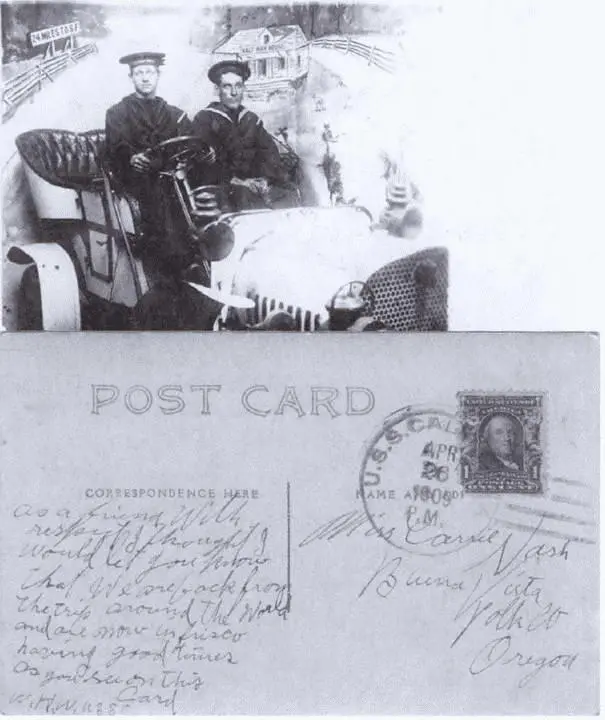 24 MILES TO S.F.
HALF WAY HOUSE
POST CARD
U.S.S. CAL
APR
26
P.M.
1
CORRESPONDENCE HERE
NAME A
As a friend With
respect I thought I
Would let you know
that We are back from
the trip around the World
and are now in frisco
having good times
as you see on this
Card
Miss Carrie Nash
Buena Vista
Polk Co
Oregon